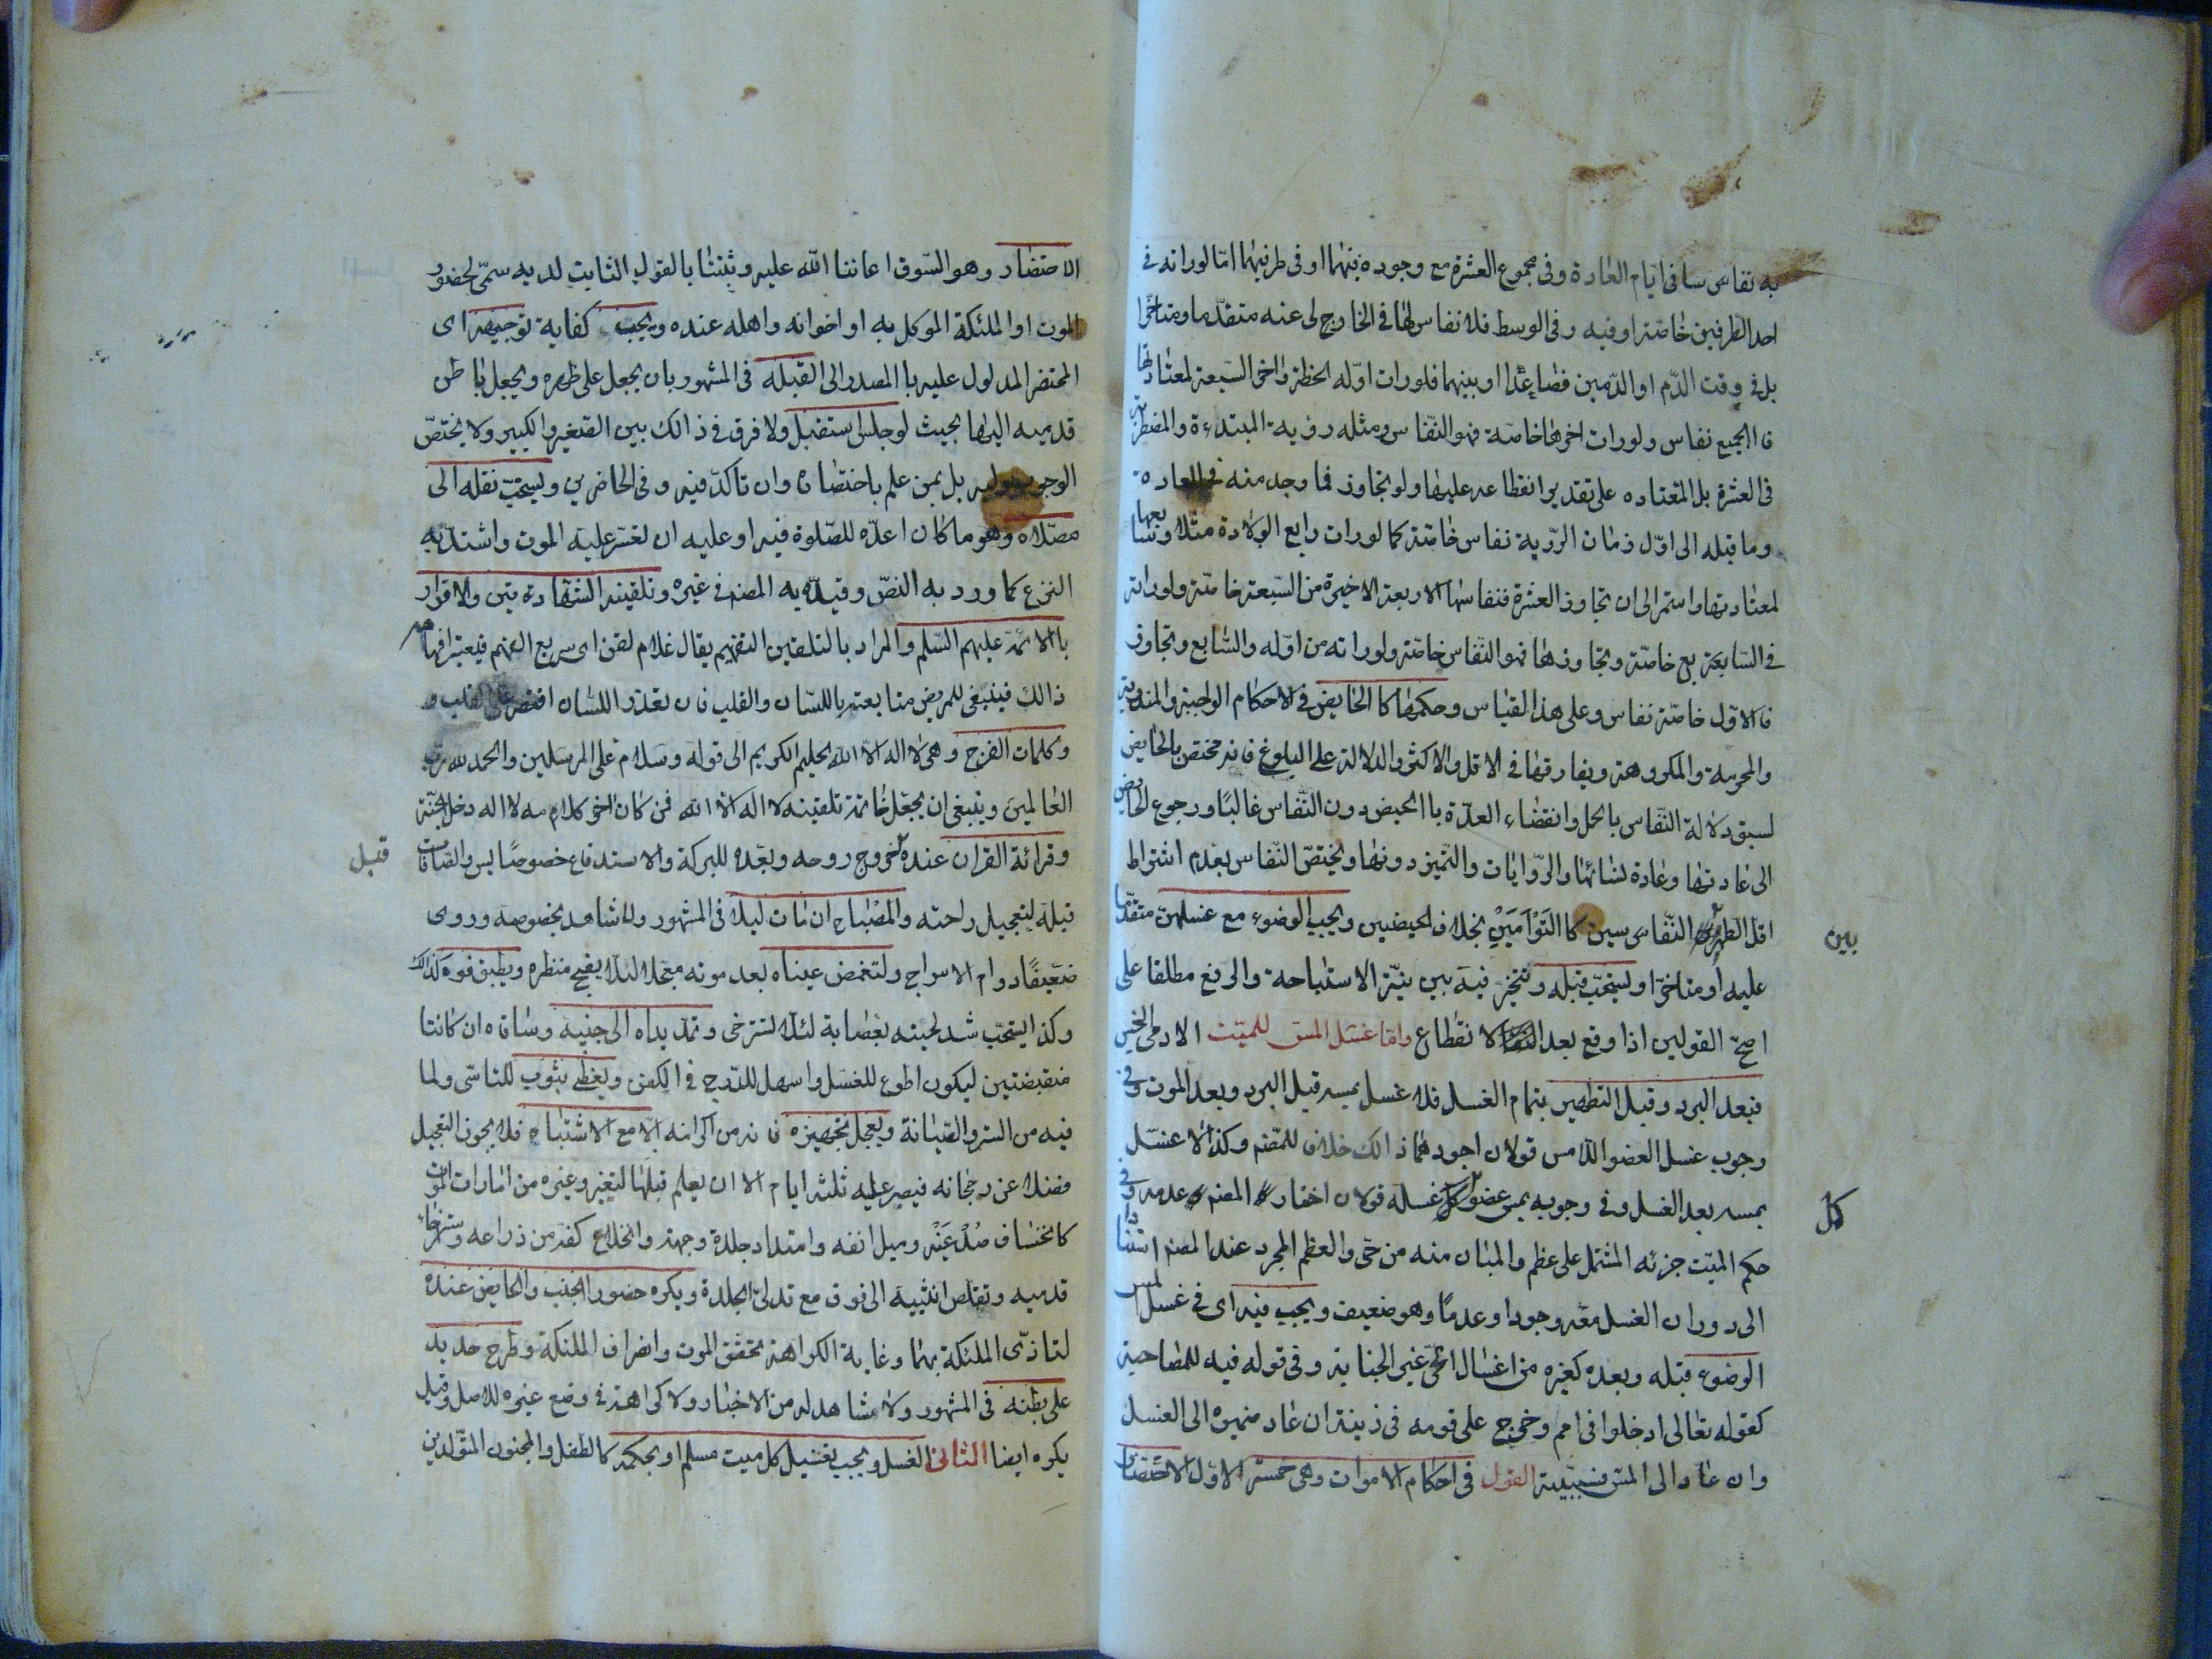 به نفاس سافى ايام العادة وفى مجموع العشرة مع وجوده بينهما او فى طرفيهما امّا لوراته فى
احد الطرفين خاصّة او فيه وفى الوسط فلا نفاس لها فى الخارج لى عنه متقدّما ومتاخّرا
بل فى وقت الدّم او الدّمين فصاعدا او بينهما فلورات اوّله الحظة واخر السّبعة لمعتادتها
فا الجميع نفاس ولورات اخرها خاصّة فهو النّفاس ومثله رؤية المبتدءة والمضطربة
فى العشرة بل المعتاده على تقدير انقطاعه عليها ولو تجاوز فما وجد منه فى العادة
وما قبله الى اوّل زمان الرّؤية نفاس خاصّة كما لورات رابع الولادة مثلا وسابعها
لمعتادتها واستمر الى ان تجاوز العشرة فنفاسها الاربعة الاخيرة من السّبعة خاصّة ولوراته
فى السّابعة بع خاصّة وتجاوزها فهو النّفاس خاصّة ولوراته من اوّله والسّابع وتجاوز
فا الاوّل خاصّة نفاس وعلى هذا القياس وحكمها كا الحايض فى الاحكام الواجبة والمندوبة
والمحرمة والمكروهة ويفارقها فى الاقل والاكثر والدلالة على البلوغ فانه مختص بالحايض
لسبق دلالة النّفاس بالحمل وانقضاء العدّة با الحيض دون النّفاس غالبًا ورجوع الحايض
الى عادتها وعادة نسائها والرّوايات والتّميز دونها ويختصّ النّفاس بعدم اشتراط
اقل الطهر بين النّفاسين كا التّوامين بخلاف الحيضين ويجب الوضوء مع غسلهن متقدّما
عليه او متاخرا ويستحب قبله وتتخير فيه بين نيّة الاستباحة والرفع مطلقا على
اصحّ القولين اذا وقع بعد الانقطاع وامّا غسل المس للميّت الادمى النجس
فبعد البرد وقبل التطهير بتمام الغسل فلا غسل بمسه قبل البرد وبعد الموت وفى
وجوب غسل العضو اللامس قولان اجودهما ذالك خلافا للمصنف وكذا لا غسل
بمسه بعد الغسل وفى وجوبه بمس عضو كل غسله قولان اختار المصنف عدمه وفى
حكم الميّت جزئه المشتمل على عظم والمبان منه من حى والعظم المجرد عند المصنف استنادا
الى دوران الغسل معه وجودا وعدمًا وهو ضعيف ويجب فيه اى فى غسل المس
الوضوء قبله وبعده كغيره من اغسال الحى غير الجنابة وفى قوله فيه للمصاحبة
كقوله تعالى ادخلوا فى امم وخرج على قومه فى زينته ان عاد ضميره الى الغسل
وان عاد الى المس فسببية القول فى احكام الاموات وهى خمسة الاوّل الاحتضار
بين
كل
الاحتضار وهو السّوق اعاننا الله عليه وثبتنا بالقول الثابت لديه سمّى لحضور
الموت او الملئكة الموكل به او اخوانه واهله عنده ويجب كفاية توجيهه اى
المحتضر المدلول عليه با المصدر الى القبلة فى المشهور بان يجعل على ظهره ويجعل باطن
قدميه اليها بحيث لو جلس استقبل ولا فرق فى ذالك بين الصّغير والكبير ولا يختصّ
الوجوب بوليه بل بمن علم باحتضاره وان تاكدّ فيه وفى الحاضرين ويستحبّ نقله الى
مصلاه وهو ما كان اعدّه للصّلوة فيه او عليه ان تعسّر عليه الموت واشتدّ به
النزع كما ورد به النصّ وقيّده به المصنف فى غيره وتلقينه الشّهادتين والاقرار
با الائمّة عليهم السّلم والمراد بالتلقين التفهيم يقال غلام لقن اى سريع الفهم فيعتبر افهامه
ذالك فينبغى للمريض متابعته باللسان والقلب فان تعذر اللسان اقتصر على القلب و
وكلمات الفرج وهى لا اله الا الله الحليم الكريم الى قوله وسلام على المرسلين والحمد لله رب
العالمين وينبغى ان يجعل خاتمة تلقينه لا اله الا الله فمن كان اخر كلامه لا اله دخل الجنّة
وقرائة القران عنده قبل خروج روحه وبعده للبركة والاستدفاع خصوصًا يس والصّافات
قبل
قبله لتعجيل راحته والمصباح ان مات ليلا فى المشهور ولا شاهد بخصوصه وروى
ضعيفًا دوام الاسراج ولتغمض عيناه بعد موته معجلا لئلا يقبح منظره ويطبق فوه كذالك
وكذا يستحبّ شد لحيته بعصابة لئلا تسترخى وتمد يداه الى جنبيه وساقاه ان كانتا
منقبضتين ليكون اطوع للغسل واسهل للدّرج فى الكفن ويغطى بثوب للتاسّى ولما
فيه من الستر والصّيانة ويعجل تجهيزه فانه من اكرامه الا مع الاشتباه فلا يجوز التعجيل
فضلا عن رجحانه فيصير عليه ثلثة ايام الا ان يعلم قبلها لتغير وغيره من امارات الموت
كانخساف صدغيه وميل انفه وامتداد جلدة وجهه وانخلاع كفه من ذراعه واسترخاء
قدميه وتقلص انثييه الى فوق مع تدلىّ الجلدة ويكره حضور الجنب والحايض عنده
لتاذّى الملئكة بهما وغاية الكراهة تحقق الموت وانصراف الملئكة وطرح حديد
على بطنه فى المشهور ولا شاهد له من الاخبار ولا كراهة فى وضع غيره للاصل وقيل
يكره ايضا الثانى الغسل ويجب تغسيل كل ميت مسلم او بحكمه كا الطفل والمجنون المتّولدين